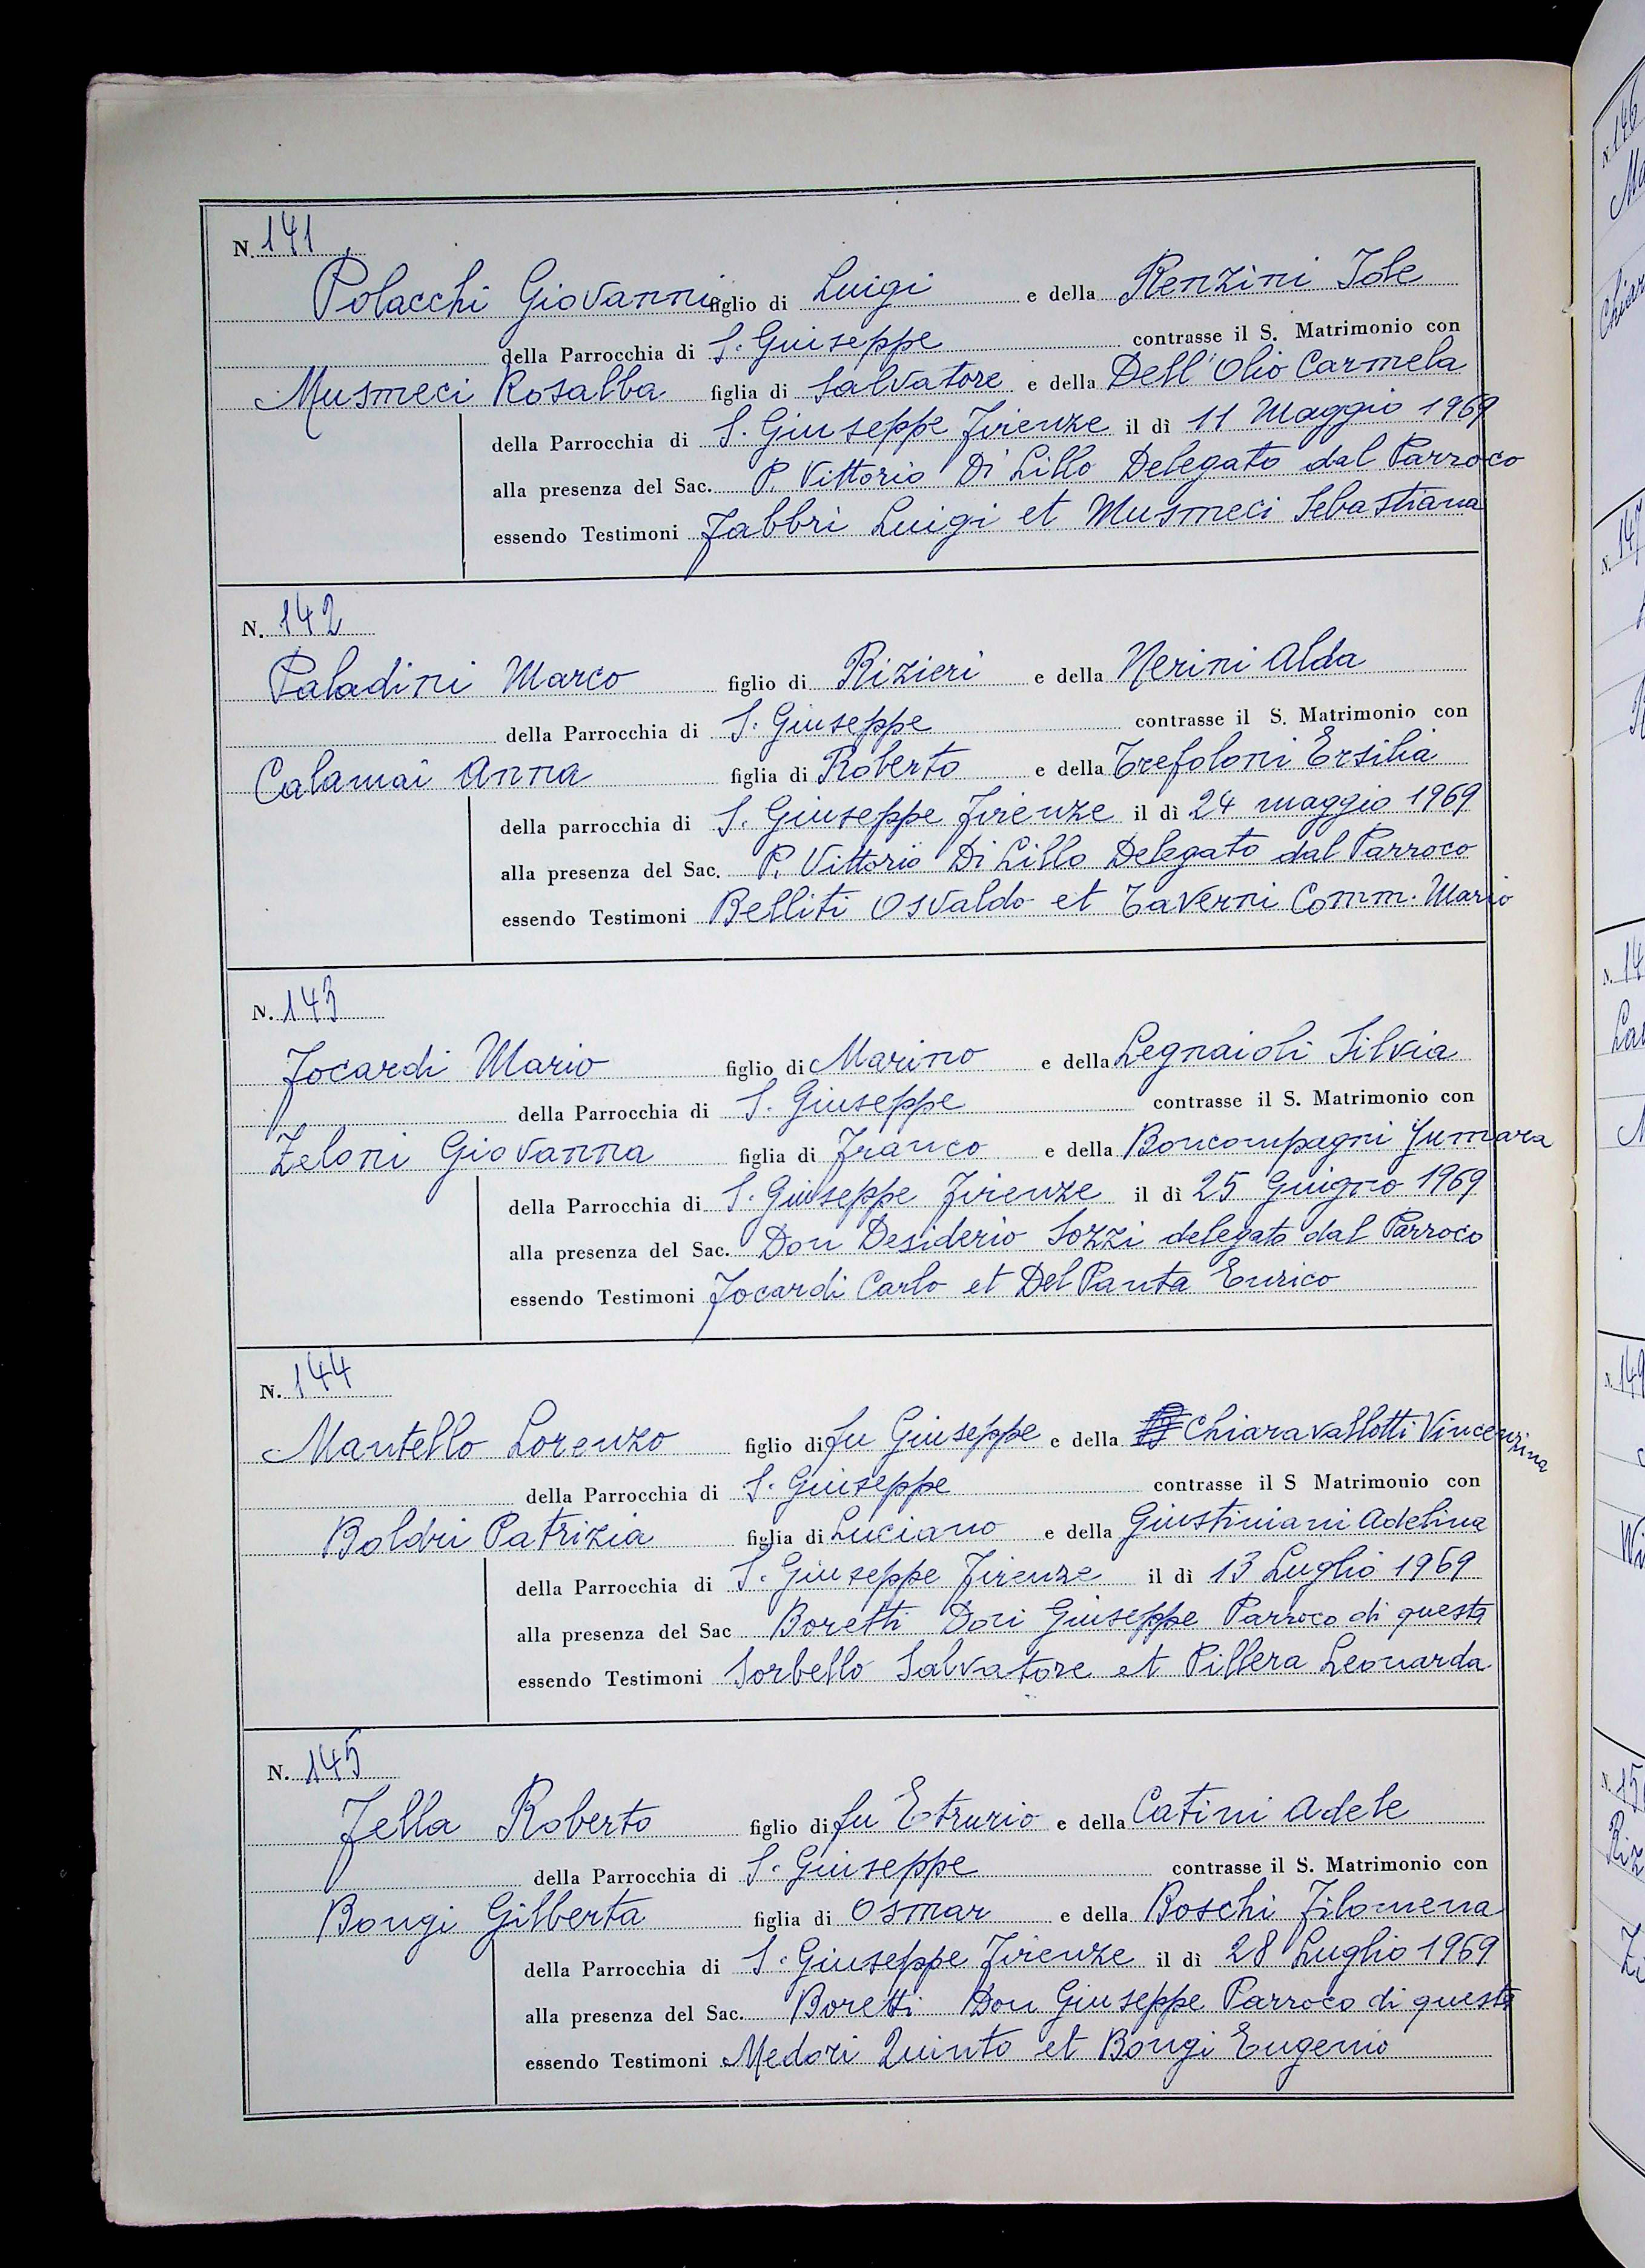 N. 141
Polacchi Giovanni figlio di Luigi e della Renzini Iole
della Parrocchia di S. Giuseppe contrasse il S. Matrimonio con
Musmeci Rosalba figlia di Salvatore e della Dell'Olio Carmela
della Parrocchia di S. Giuseppe Firenze il dì 11 Maggio 1969
alla presenza del Sac. P. Vittorio Di Lillo Delegato dal Parroco
essendo Testimoni Fabbri Luigi et Musmeci Sebastiana
N. 142
Paladini Marco figlio di Rizieri e della Nerini Alda
della Parrocchia di S. Giuseppe contrasse il S. Matrimonio con
Calamai Anna figlia di Roberto e della Trefoloni Ersilia
della parrocchia di S. Giuseppe Firenze il dì 24 maggio 1969
alla presenza del Sac. P. Vittorio Di Lillo Delegato dal Parroco
essendo Testimoni Belliti Osvaldo et Taverni Comm. Mario
N. 143
Focardi Mario figlio di Marino e della Legnaioli Silvia
della Parrocchia di S. Giuseppe contrasse il S. Matrimonio con
Zeloni Giovanna figlia di Franco e della Boncompagni Jumara
della Parrocchia di S. Giuseppe Firenze il dì 25 Giugno 1969
alla presenza del Sac. Don Desiderio Sozzi delegato dal Parroco
essendo Testimoni Focardi Carlo et Del Panta Enrico
N. 144
Mantello Lorenzo figlio di fu Giuseppe e della Chiaravallotti Vincenzina
della Parrocchia di S. Giuseppe contrasse il S Matrimonio con
Boldri Patrizia figlia di Luciano e della Giustiniani Adelina
della Parrocchia di S. Giuseppe Firenze il dì 13 Luglio 1969
alla presenza del Sac Boretti Don Giuseppe Parroco di questa
essendo Testimoni Sorbello Salvatore et Pillera Leonarda
N. 145
Fella Roberto figlio di fu Etrurio e della Catini Adele
della Parrocchia di S. Giuseppe contrasse il S. Matrimonio con
Bongi Gilberta figlia di Osmar e della Boschi Filomena
della Parrocchia di S. Giuseppe Firenze il dì 28 Luglio 1969
alla presenza del Sac. Boretti Don Giuseppe Parroco di questa
essendo Testimoni Medori Quinto et Bongi Eugenio
N. 146